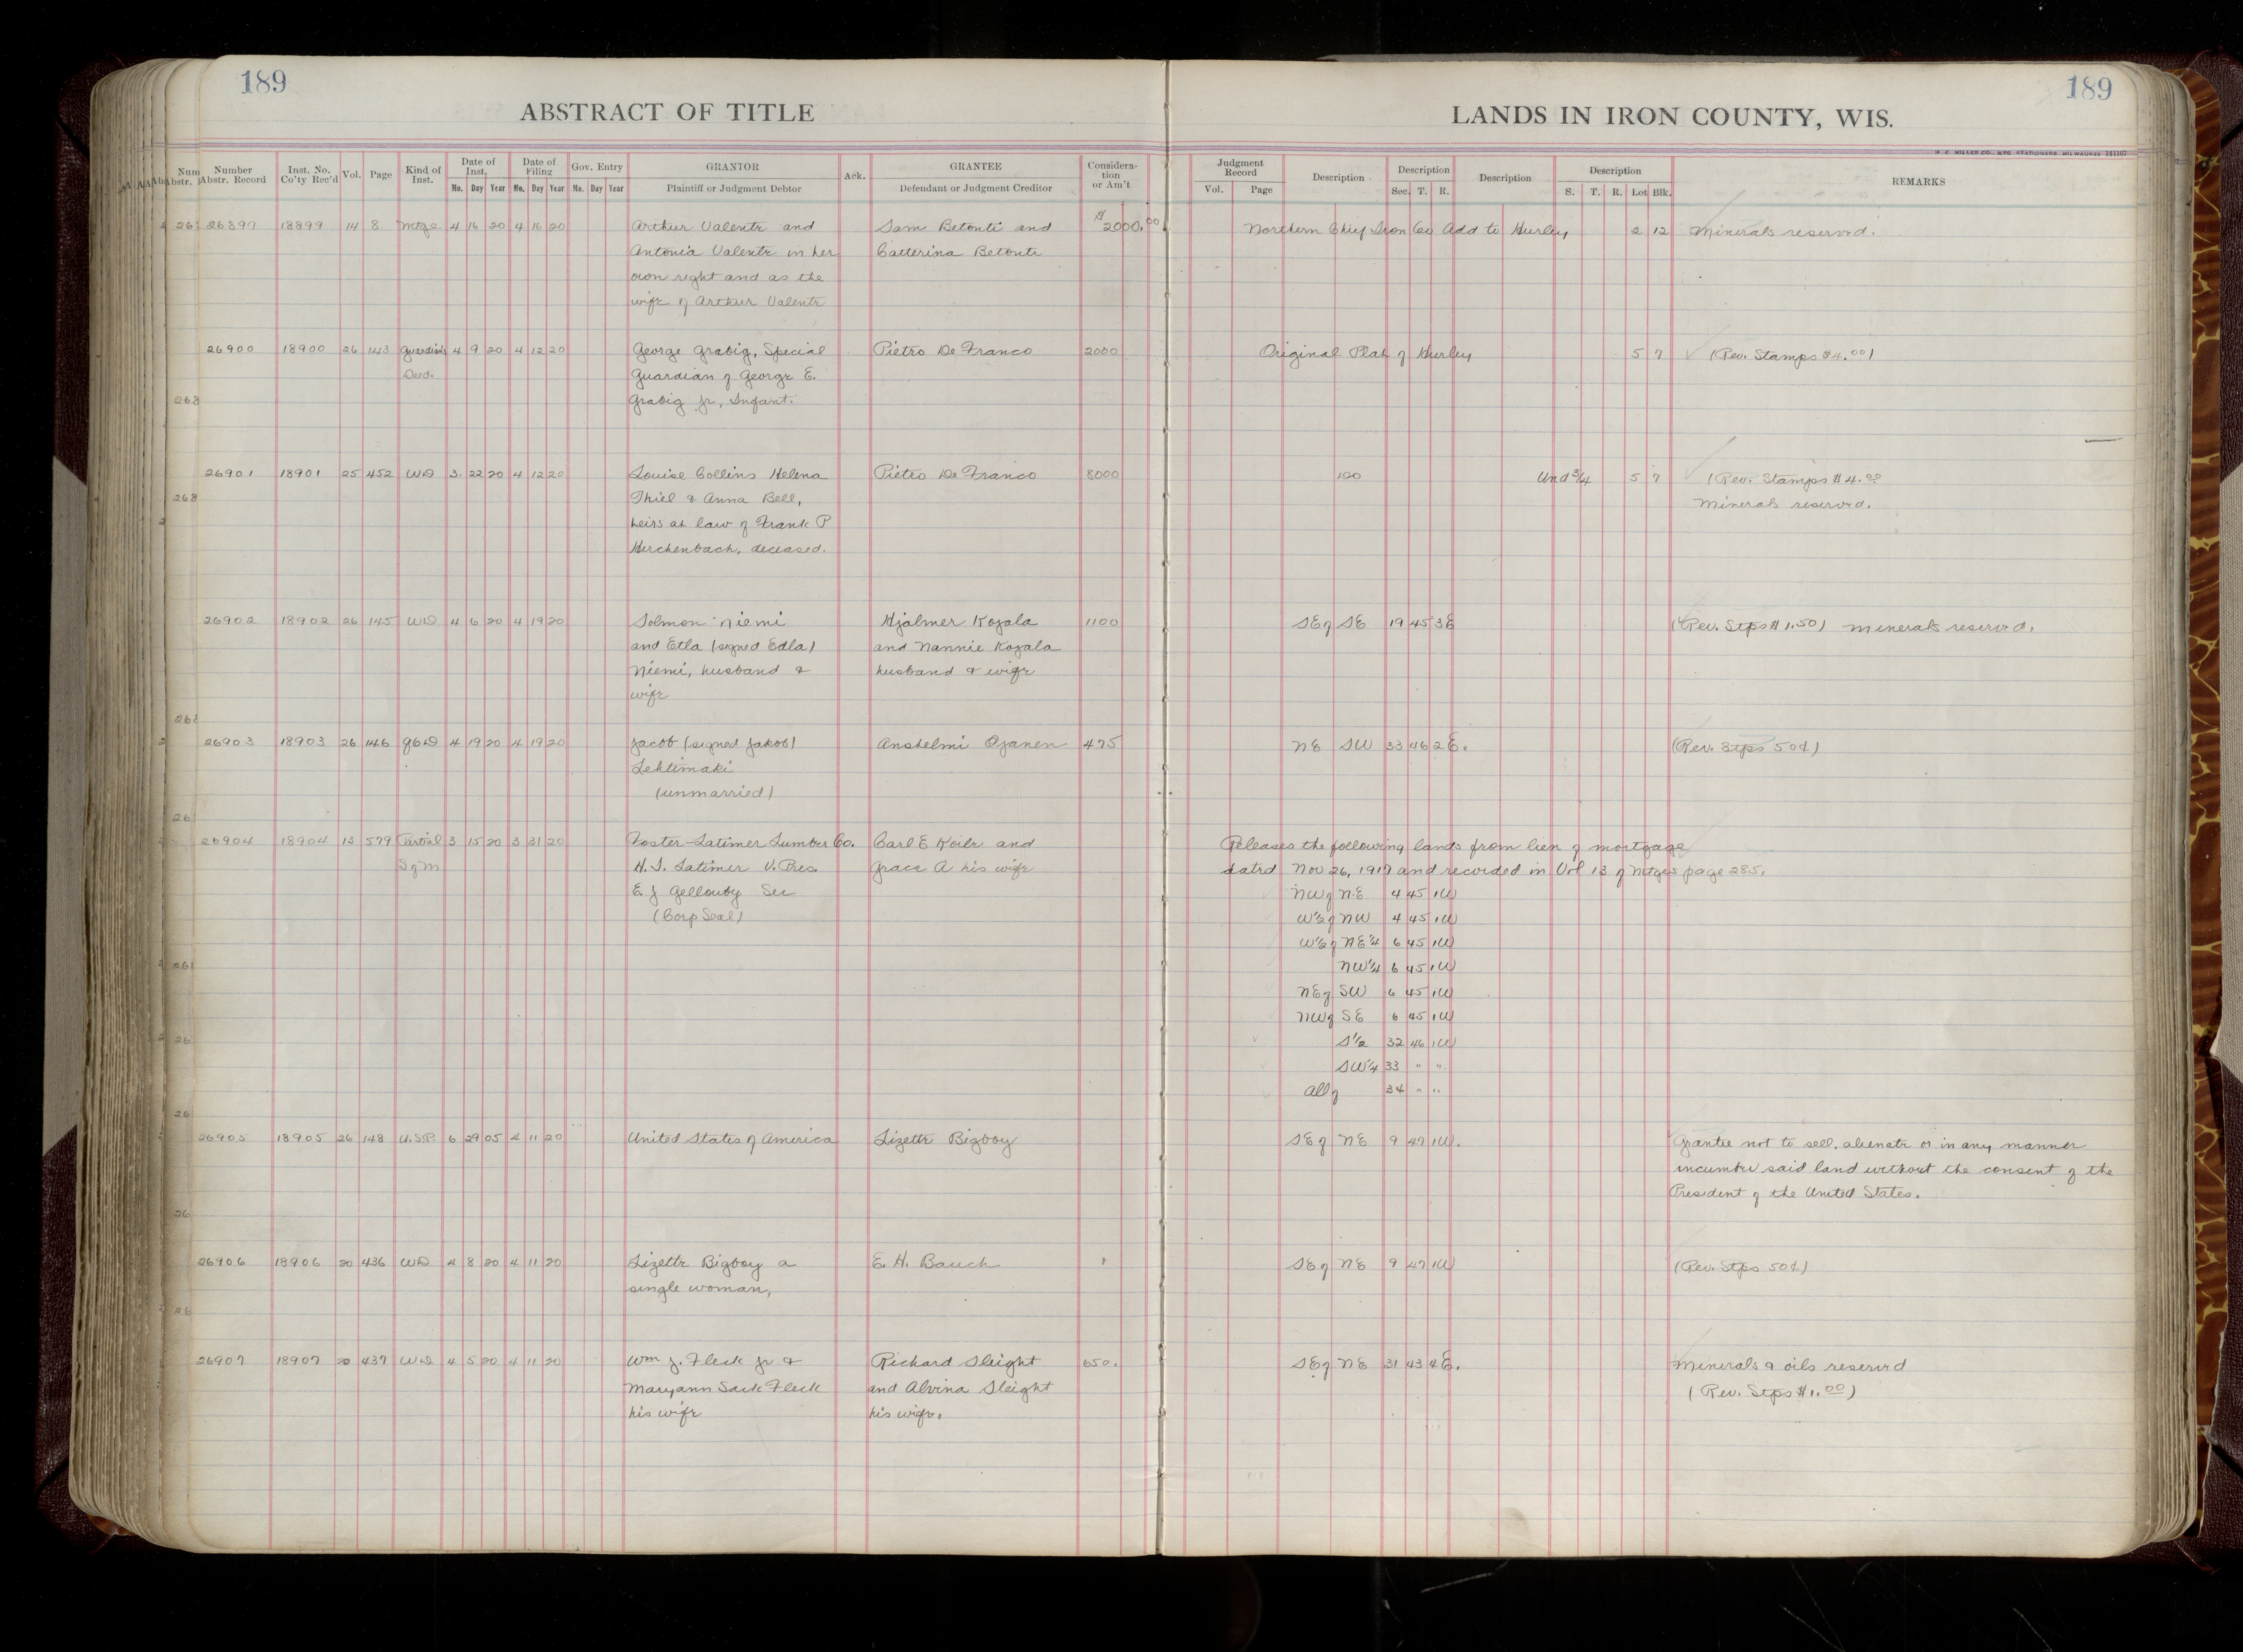 189
ABSTRACT OF TITLE
Number Abstr. Record
Inst. No. Co'ty Rec'd
Vol.
Page
Kind of Inst.
Date of Inst.
Mo. Day Year
Date of Filing
Mo. Day Year
Gov. Entry
Mo. Day Year
GRANTOR
Plaintiff or Judgment Debtor
Ack.
GRANTEE
Defendant or Judgment Creditor
Considera-
tion
or Am't
189
LANDS IN IRON COUNTY, WIS.
H. C. MILLER CO., MFG. STATIONERS, MILWAUKEE
Judgment Record
Vol. Page
Description
Description
Sec. T. R.
Description
Description
S. T. R. Lot Blk.
REMARKS
26899 18899 14 8 Mtge 4 16 20 4 16 20 Arthur Valente and Sam Betonti and $2000.00 Northern Chief Iron Co Add to Hurley 2 12 Minerals reserved.
Antonia Valente in her Catterina Betonti
own right and as the
wife of Arthur Valente
26900 18900 26 143 Guardians 4 9 20 4 12 20 George Grabig, Special Pietro De Franco 2000 Original Plat of Hurley 5 7 (Rev. Stamps $4.00)
Deed. Guardian of George E.
Grabig Jr, Infant.
26901 18901 25 452 WD 3 22 20 4 12 20 Louise Collins Helena Pietro De Franco 8000 Und 3/4 5 7 (Rev. Stamps $4.00
Thiel & Anna Bell, Minerals reserved.
heirs at law of Frank P
Herchenbach, deceased.
26902 18902 26 145 WD 4 6 20 4 19 20 Solmon Niemi Hjalmer Kojala 1100 SE of SE 19 45 3E (Rev. Stps $1.50) Minerals reserved.
and Etla (signed Edla) and Nannie Kojala
Niemi, husband & husband & wife
wife
26903 18903 26 146 QCD 4 19 20 4 19 20 Jacob (signed Jakob) Anshelmi Ojanen 475 NE SW 33 46 2E. (Rev. Stps 50¢)
Lehtimaki
(unmarried)
26904 18904 13 579 Partial 3 15 20 3 31 20 Foster-Latimer Lumber Co. Carl E Koile and Releases the following lands from lien of mortgage
S of M H. S. Latimer V. Pres. Grace A his wife dated Nov 26, 1919 and recorded in Vol 13 of Mtges page 285.
E. J Gellouby Sec NW of NE 4 45 1W
(Corp Seal) W½ of NW 4 45 1W
W½ of NE¼ 6 45 1W
NW¼ 6 45 1W
NE of SW 6 45 1W
NW of SE 6 45 1W
S½ 32 46 1W
SW¼ 33 " "
All of 34 " "
26905 18905 26 148 U.S.P. 6 29 05 4 11 20 United States of America Lizette Bigboy SE of NE 9 47 1W. Grantee not to sell, alienate or in any manner
incumber said land without the consent of the
President of the United States.
26906 18906 20 436 WD 4 8 20 4 11 20 Lizette Bigboy a E. H. Bauch 1 SE of NE 9 47 1W (Rev. Stps 50¢)
single woman,
26907 18907 20 437 WD 4 5 20 4 11 20 Wm J. Fleck Jr & Richard Sleight 650. SE of NE 31 43 4E. Minerals & oils reserved
Maryann Sack Fleck and Alvina Sleight (Rev. Stps $1.00)
his wife his wife.